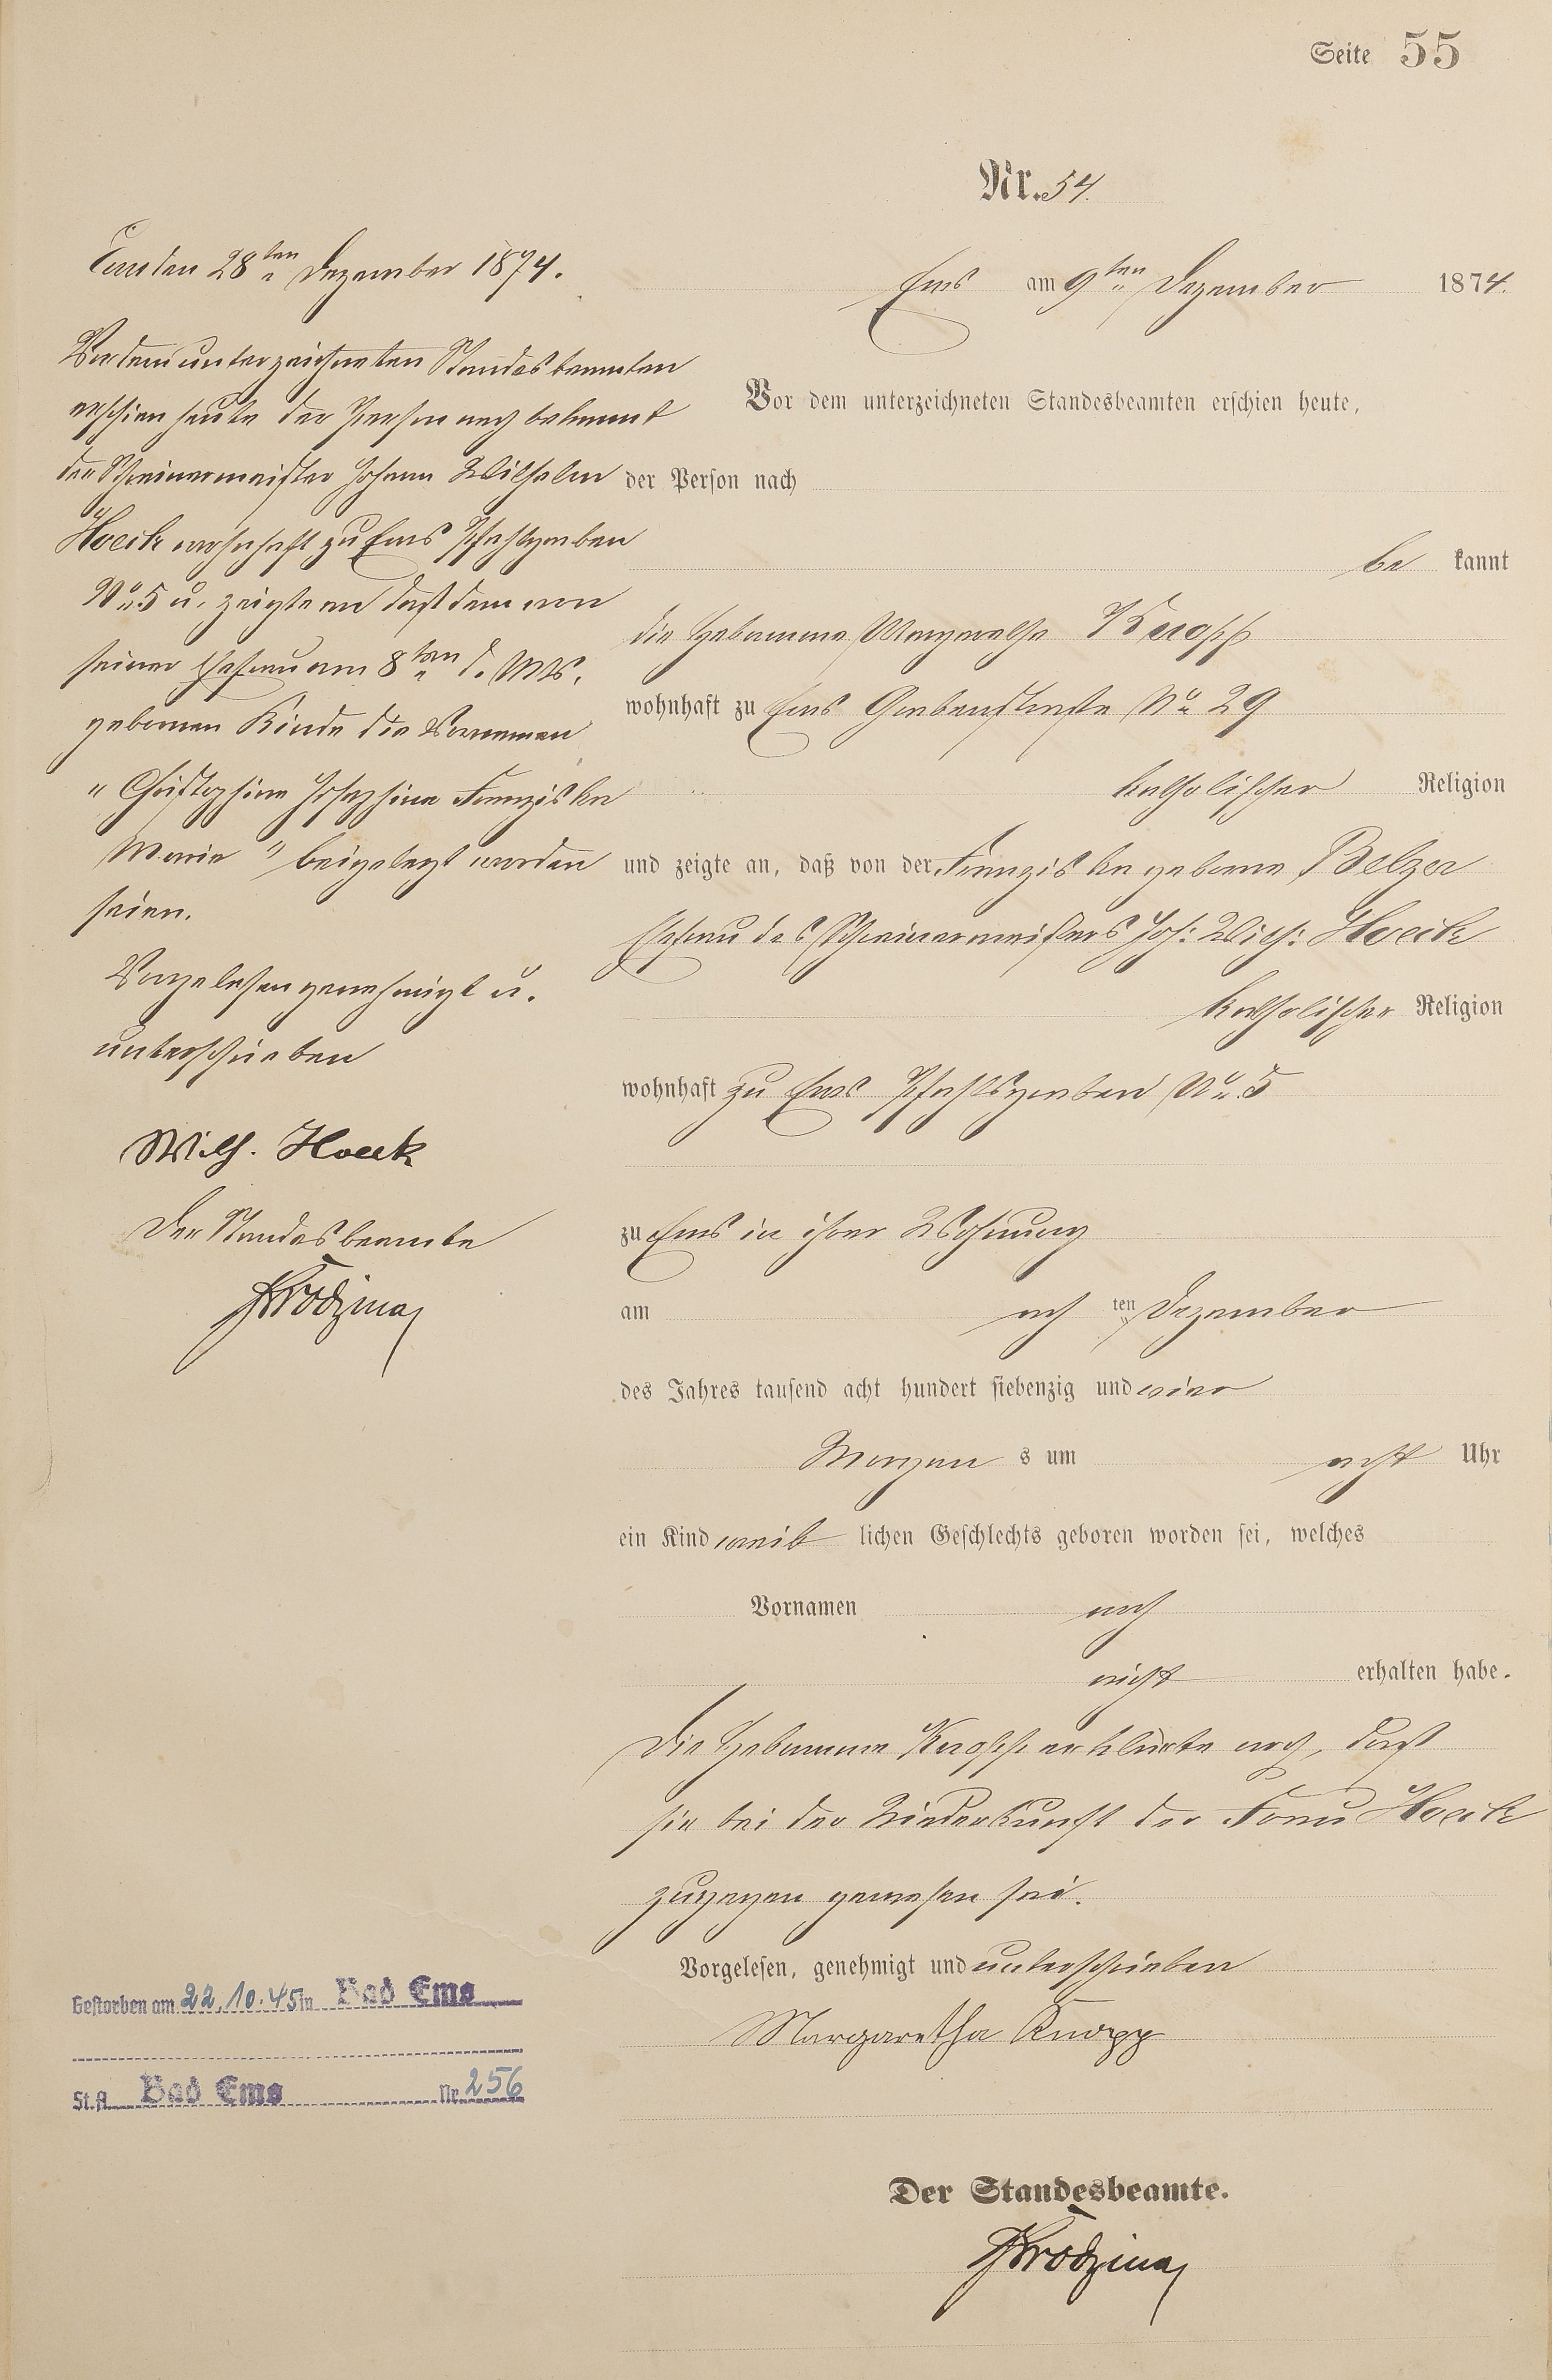 Seite 55
Nr. 54.
Ems am 9ten Dezember 1874.
Vor dem unterzeichneten Standesbeamten erschien heute,
der Person nach
be kannt
die Hebamme Margaretha Knopp
wohnhaft zu Ems Grabenstraße No 29
katholischer Religion
und zeigte an, daß von der Franziska geborne Belzer
Ehefrau des Schreinermeisters Joh: Wilh: Hoeck
katholischer Religion
wohnhaft zu Ems Pfahlgraben No 5
zu Ems in ihrer Wohnung
am acht ten Dezember
des Jahres tausend acht hundert siebenzig und vier
Morgen s um acht Uhr
ein Kind weib lichen Geschlechts geboren worden sei, welches
Vornamen noch
nicht erhalten habe.
Die Hebamme Knopp erklärte noch, daß
sie bei der Niederkunft der Frau Hoeck
zugegen gewesen sei.
Vorgelesen, genehmigt und unterschrieben
Margaretha Knopp
Der Standesbeamte.
Ems den 28ten Dezember 1874.
Vor dem unterzeichneten Standesbeamten
erschien heute der Person nach bekannt
der Schreinermeister Johann Wilhelm
Hoeck wohnhaft zu Ems Pfahlgraben
No 5 u. zeigte an daß dem von
seiner Ehefrau am 8ten d. Mts.
gebornen Kinde die Vornamen
"Christophine Josephine Franziska
Marie" beigelegt worden
seien.
Vorgelesen genehmigt u.
unterschrieben
Wilh. Hoeck
Der Standesbeamte
Gestorben am 22.10.45 in Bad Ems
St.A. Bad Ems Nr. 256